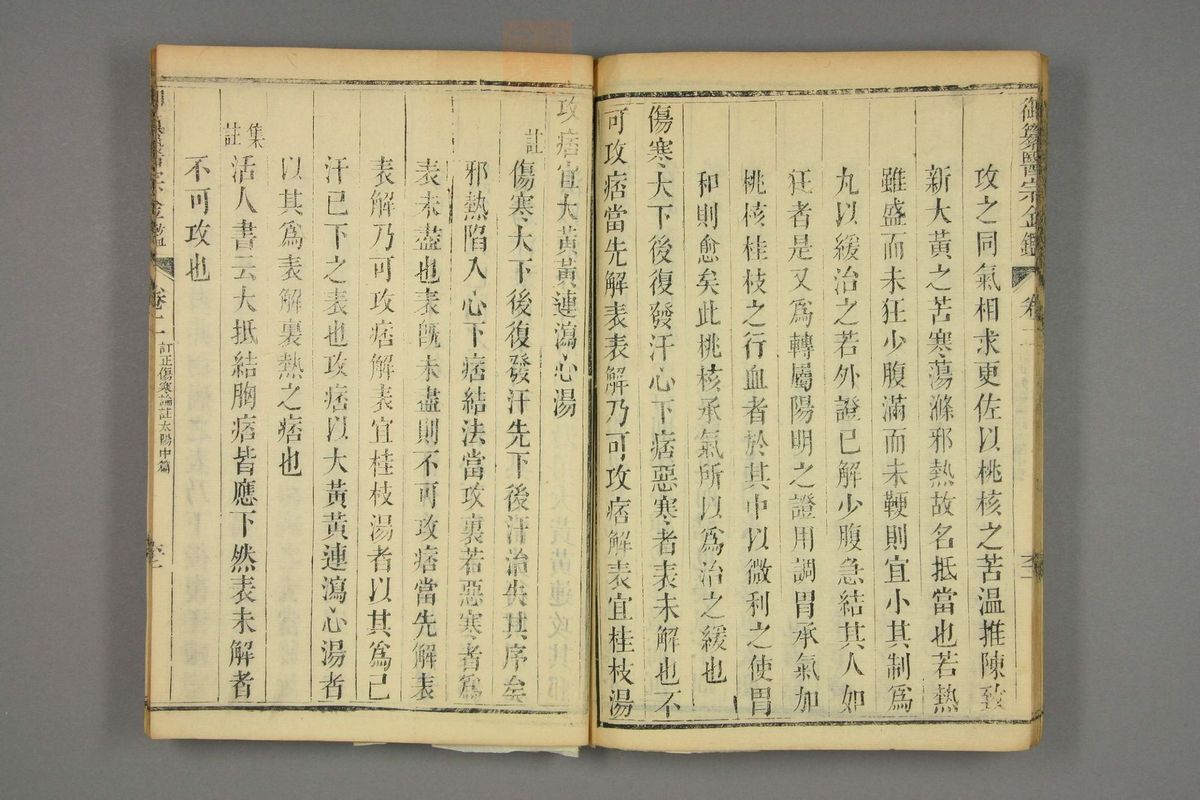 御纂醫宗金鑑
卷二
攻之同氣相求更佐以桃核之苦溫推陳致
新大黃之苦寒蕩滌邪熱故名抵當也若熱
雖盛而未狂少腹滿而未鞕則宜小其制爲
丸以緩治之若外證已解少腹急結其人如
狂者是又爲轉屬陽明之證用調胃承氣加
桃核桂枝之行血者於其中以微利之使胃
和則愈矣此桃核承氣所以爲治之緩也
傷寒大下後復發汗心下痞惡寒者表未解也不
可攻痞當先解表表解乃可攻痞解表宜桂枝湯
攻痞宜大黃黃連瀉心湯
註
傷寒大下後復發汗先下後汗治失其序矣
邪熱陷入心下痞結法當攻裏若惡寒者爲
表未盡也表既未盡則不可攻痞當先解表
表解乃可攻痞解表宜桂枝湯者以其爲已
汗已下之表也攻痞以大黃黃連瀉心湯者
以其爲表解裏熱之痞也
集註
活人書云大抵結胸痞皆應下然表未解者
不可攻也
醫宗金鑑
卷二
訂正傷寒論註太陽中篇